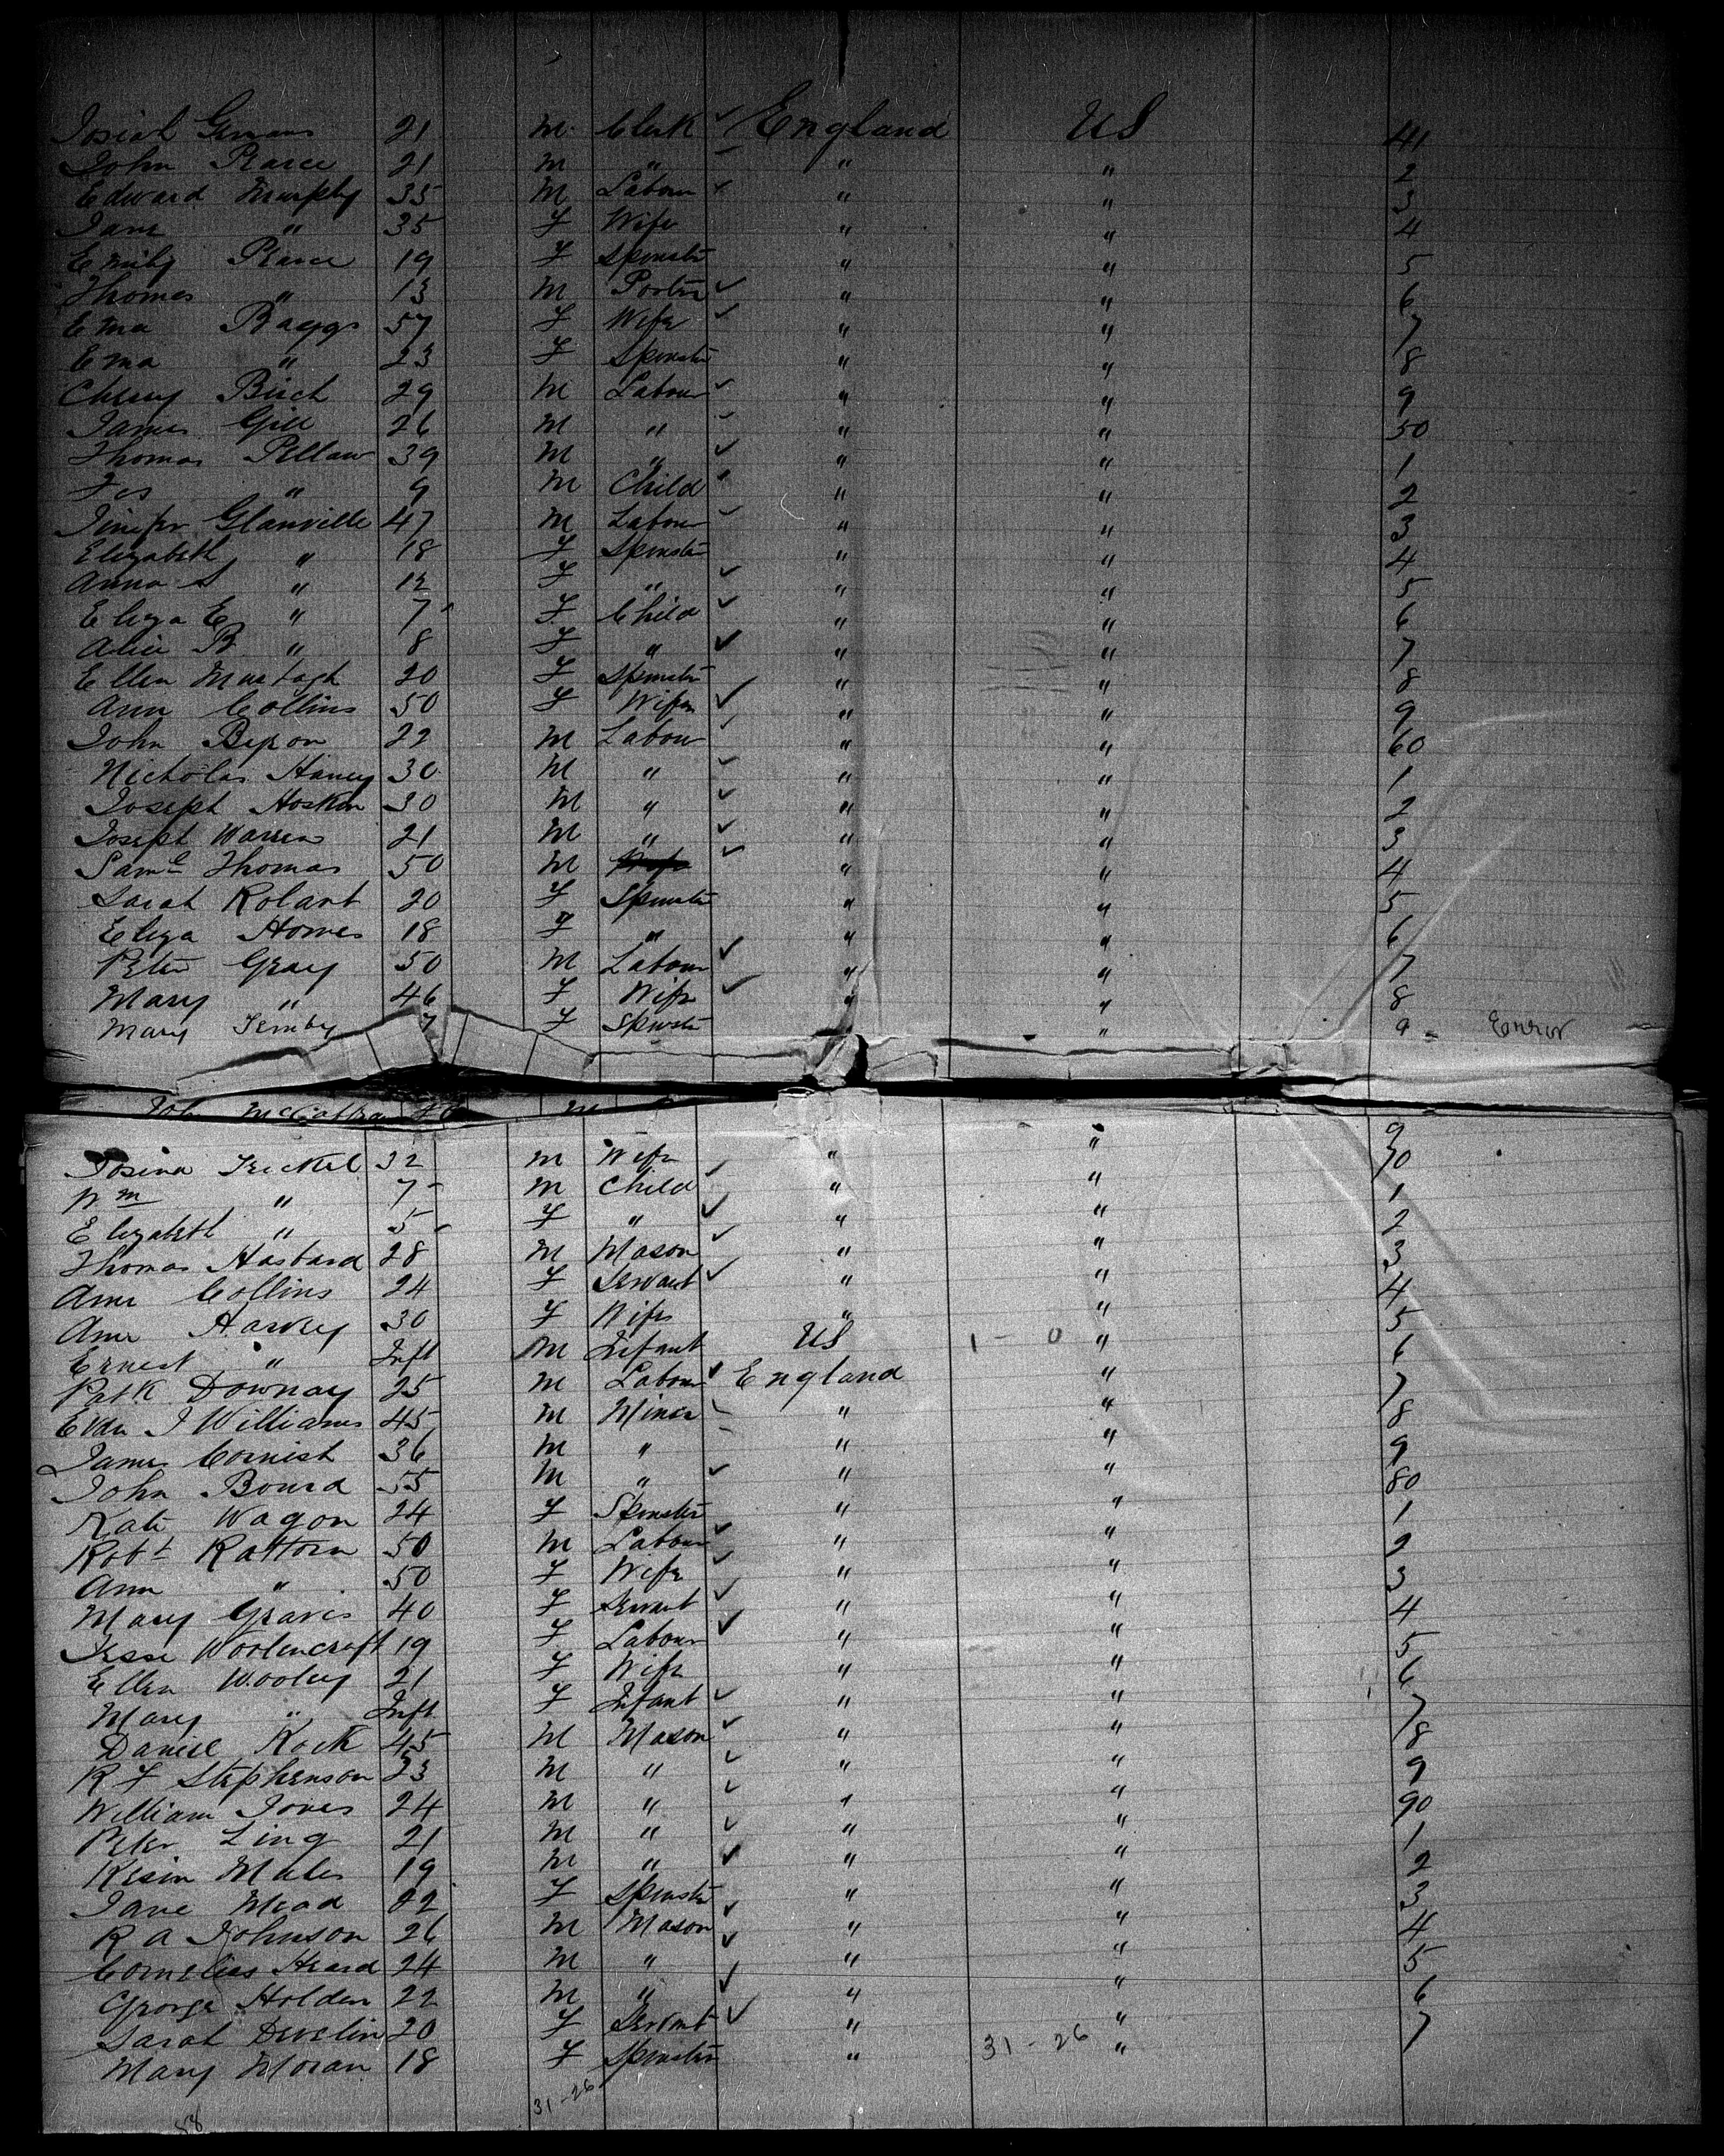 Josiah Gemans 21 M Clerk ✓ England US 41
John Pearce 21 M " " " 2
Edward Murphy 35 M Labour " " 3
Jane " 35 F Wife " " 4
Emily Pearce 19 F Spinster " " 5
Thomas " 13 M Porter ✓ " " 6
Ema Baggs 57 F Wife ✓ " " 7
Ema " 23 F Spinster " " 8
Cherry Birch 29 M Labour ✓ " " 9
James Gill 26 M " " " 50
Thomas Pellaw 39 M " ✓ " " 1
" 9 M Child " " 2
Glanville 47 M Labour ✓ " " 3
Elizabeth " 18 F Spinster " " 4
Anna S " 12 F " ✓ " " 5
Eliza E " 7 F Child ✓ " " 6
Alice B " 8 F " ✓ " " 7
Ellen Murtagh 20 F Spinster " " 8
Ann Collins 50 F Wife ✓ " " 9
John Bepon 22 M Labour ✓ " " 60
Nicholas Haney 30 M " ✓ " " 1
Joseph Hoskin 30 M " ✓ " " 2
Joseph Warren 21 M " ✓ " " 3
Saml Thomas 50 M ✓ " " 4
Sarah Rolant 20 F Spinster " " 5
Eliza Homes 18 F " " " 6
Peter Gray 50 M Labour ✓ " " 7
Mary " 46 F Wife ✓ " " 8
Mary Temby 7 F Spinster " 9 Error
John M
Josina Trickel 32 M Wife " " 9 70
Wm " 7 M Child ✓ " " 1
Elizabeth " 5 F " ✓ " " 2
Thomas Hasbard 28 M Mason ✓ " " 3
Ann Collins 24 F Servant ✓ " " 4
Ann Harvey 30 F Wife " " 5
Ernest " Inft M Infant US 1 - 0 " 6
Patk Downay 25 M Labour ✓ England " 7
Evan J Williams 45 M Miner " " 8
James Cornish 36 M " " " 9
John Bourd 55 M " ✓ " " 80
Kate Wagon 24 F Spinster " " 1
Robt Rattorn 50 M Labour ✓ " " 2
Ann " 50 F Wife ✓ " " 3
Mary Graves 40 F Servant ✓ " " 4
Jesse Woolencraft 19 F Labour ✓ " " 5
Ellen Wooley 21 F Wife " " 6
Mary " Inft F Infant ✓ " " 7
Daniel Rock 45 M Mason ✓ " " 8
R F Stephenson 23 M " ✓ " " 9
William Jones 24 M " ✓ " " 90
Peter Ling 21 M " ✓ " " 1
Males 19 M " ✓ " " 2
Jane Mead 22 F Spinster " " 3
R A Johnson 26 M Mason ✓ " " 4
Cornelius Heard 24 M " ✓ " " 5
George Holden 22 M " ✓ " " 6
Sarah Develin 20 F Servant ✓ " " 7
Mary Moran 18 F Spinster " 31 - 26 "
31 - 26
58